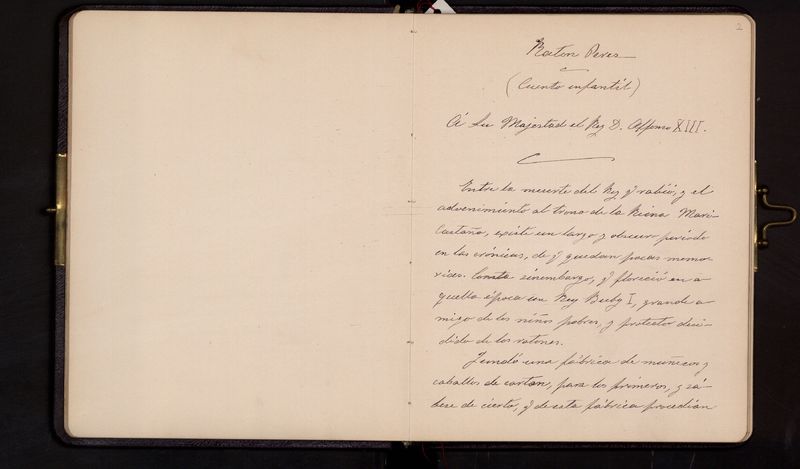 2
Raton Peres
(Cuento infantil)
Á Su Majestad el Rey D. Alfonso XIII.
Entre la muerte del Rey q.e rabió, y el
advenimiento al trono de la Reina Mari
Castaña, existe un largo y obscuro periodo
en las crónicas, de q.e quedan pocas memo-
rias. Consta sinembargo, q.e floreció en a-
quella época un Rey Buby I, grande a-
migo de los niños pobres, y protector deci-
dido de los ratones.
Fundó una fábrica de muñecos y
caballos de carton, para los primeros, y sá-
bese de cierto, q.e de esta fábrica procedian